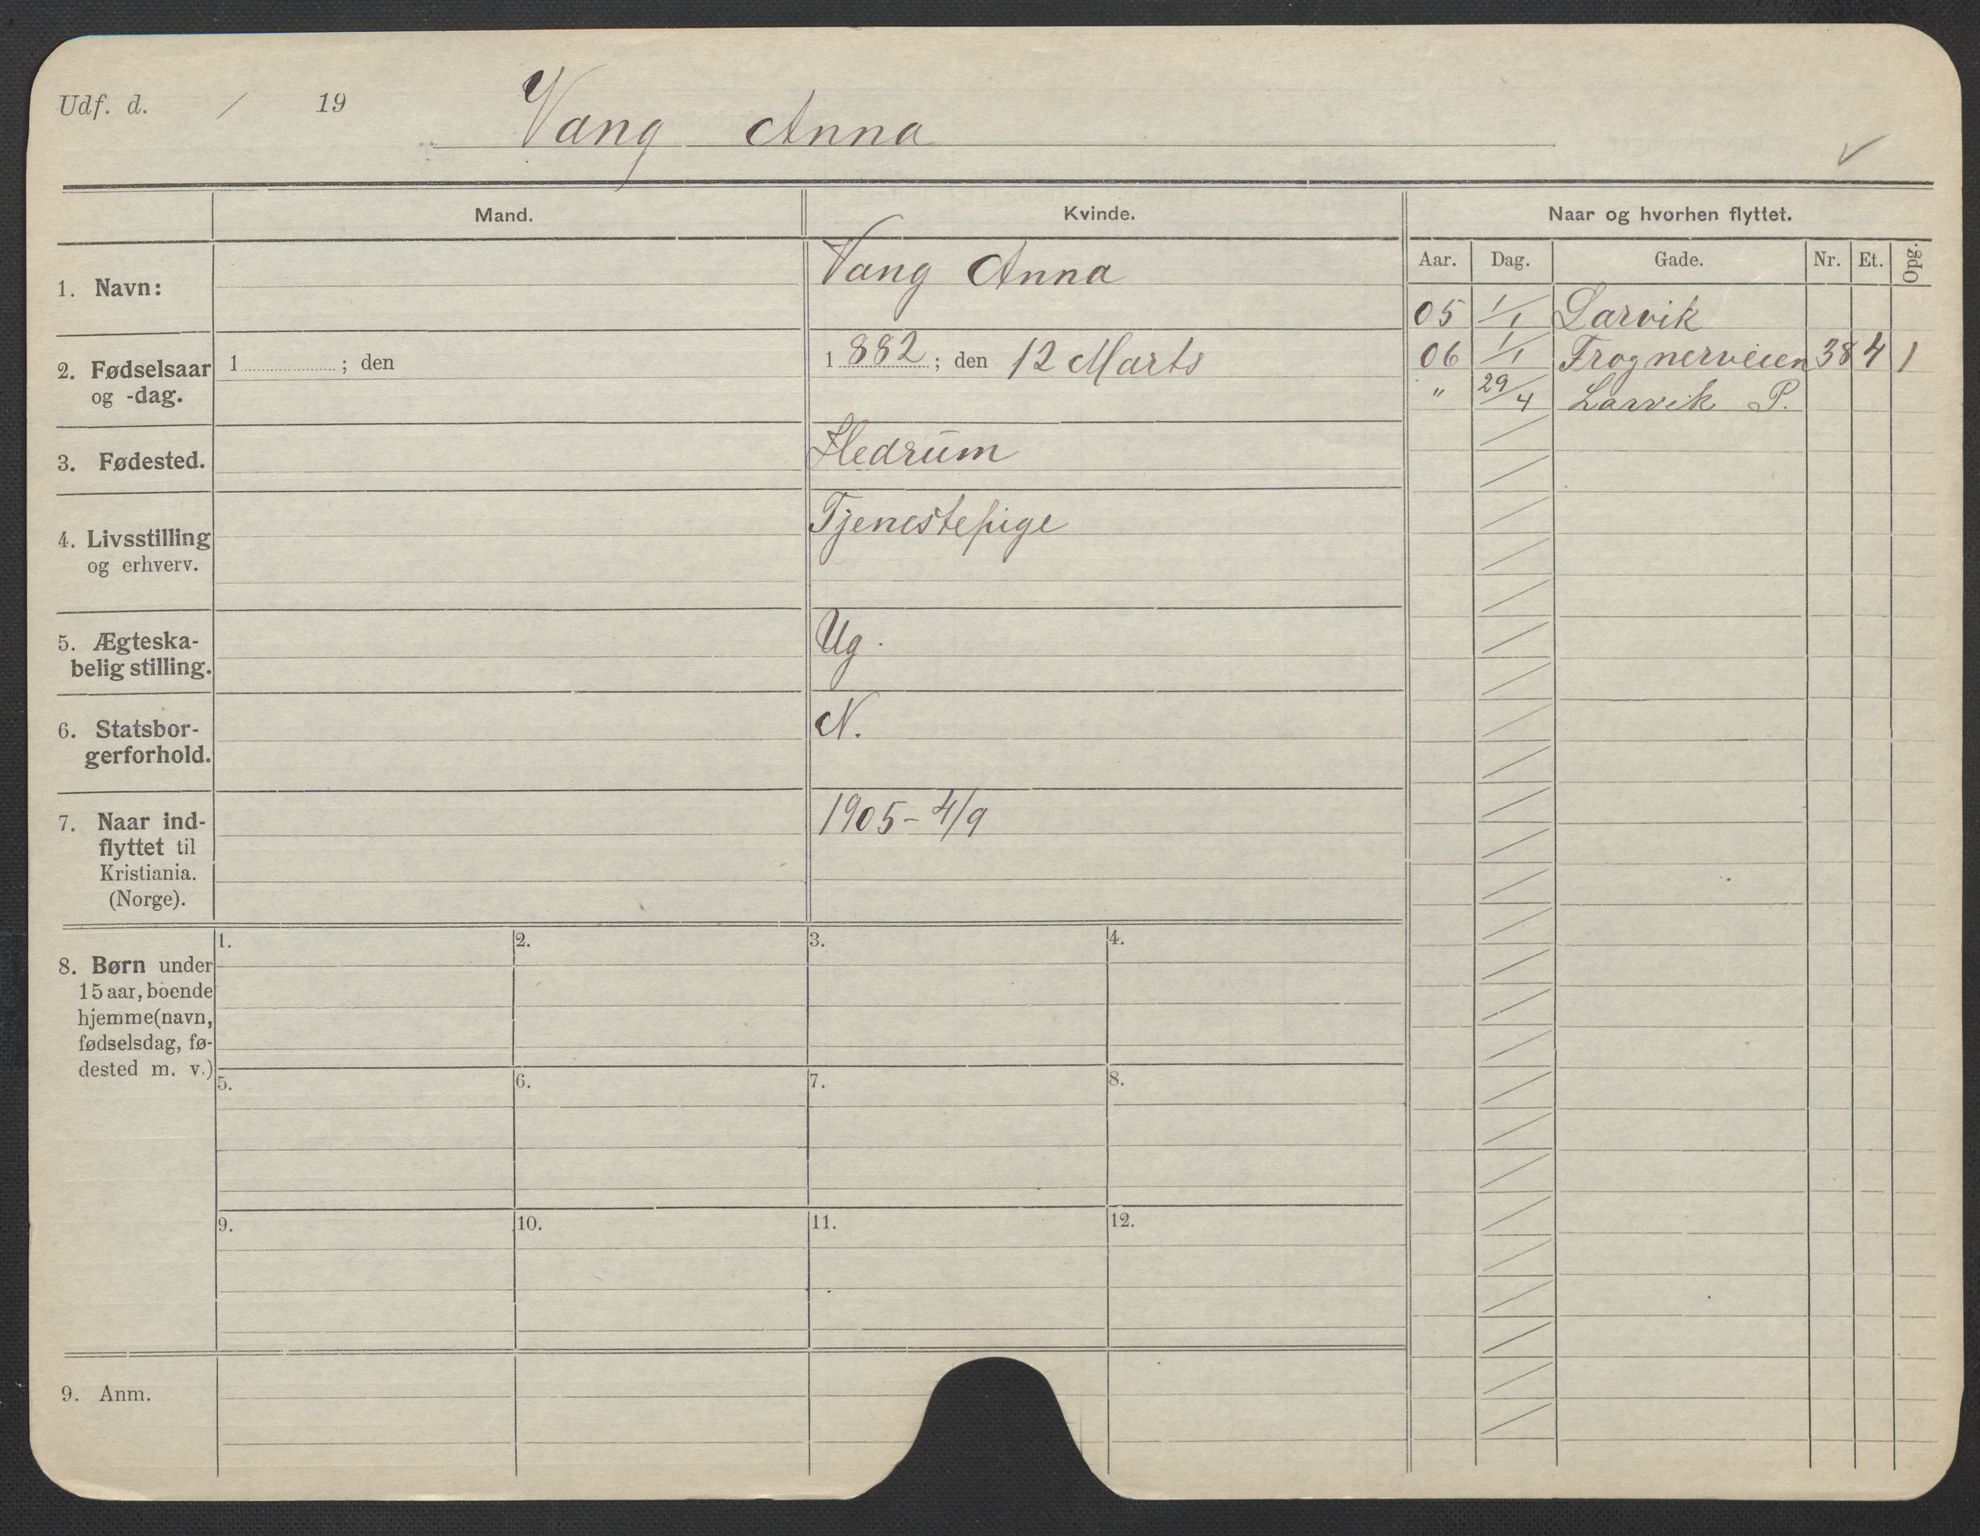 Udf. d. / 19
Vang Anna
Mand.
Kvinde.
Naar og hvorhen flyttet.
Aar. Dag. Gade. Nr. Et. Opg.
1. Navn:
Vang Anna
05 1/1 Larvik
06 1/1 Frognerveien 38 4 1
" 29/4 Larvik P.
2. Fødselsaar
og -dag.
1 ; den
1 882 ; den 12 Marts
3. Fødested.
Hedrum
4. Livsstilling
og erhverv.
Tjenestepige
5. Ægteska-
belig stilling.
Ug.
6. Statsbor-
gerforhold.
N.
7. Naar ind-
flyttet til
Kristiania.
(Norge).
1905 - 4/9
8. Børn under
15 aar, boende
hjemme (navn,
fødselsdag, fø-
dested m. v.)
1. 2. 3. 4.
5. 6. 7. 8.
9. 10. 11. 12.
9. Anm.